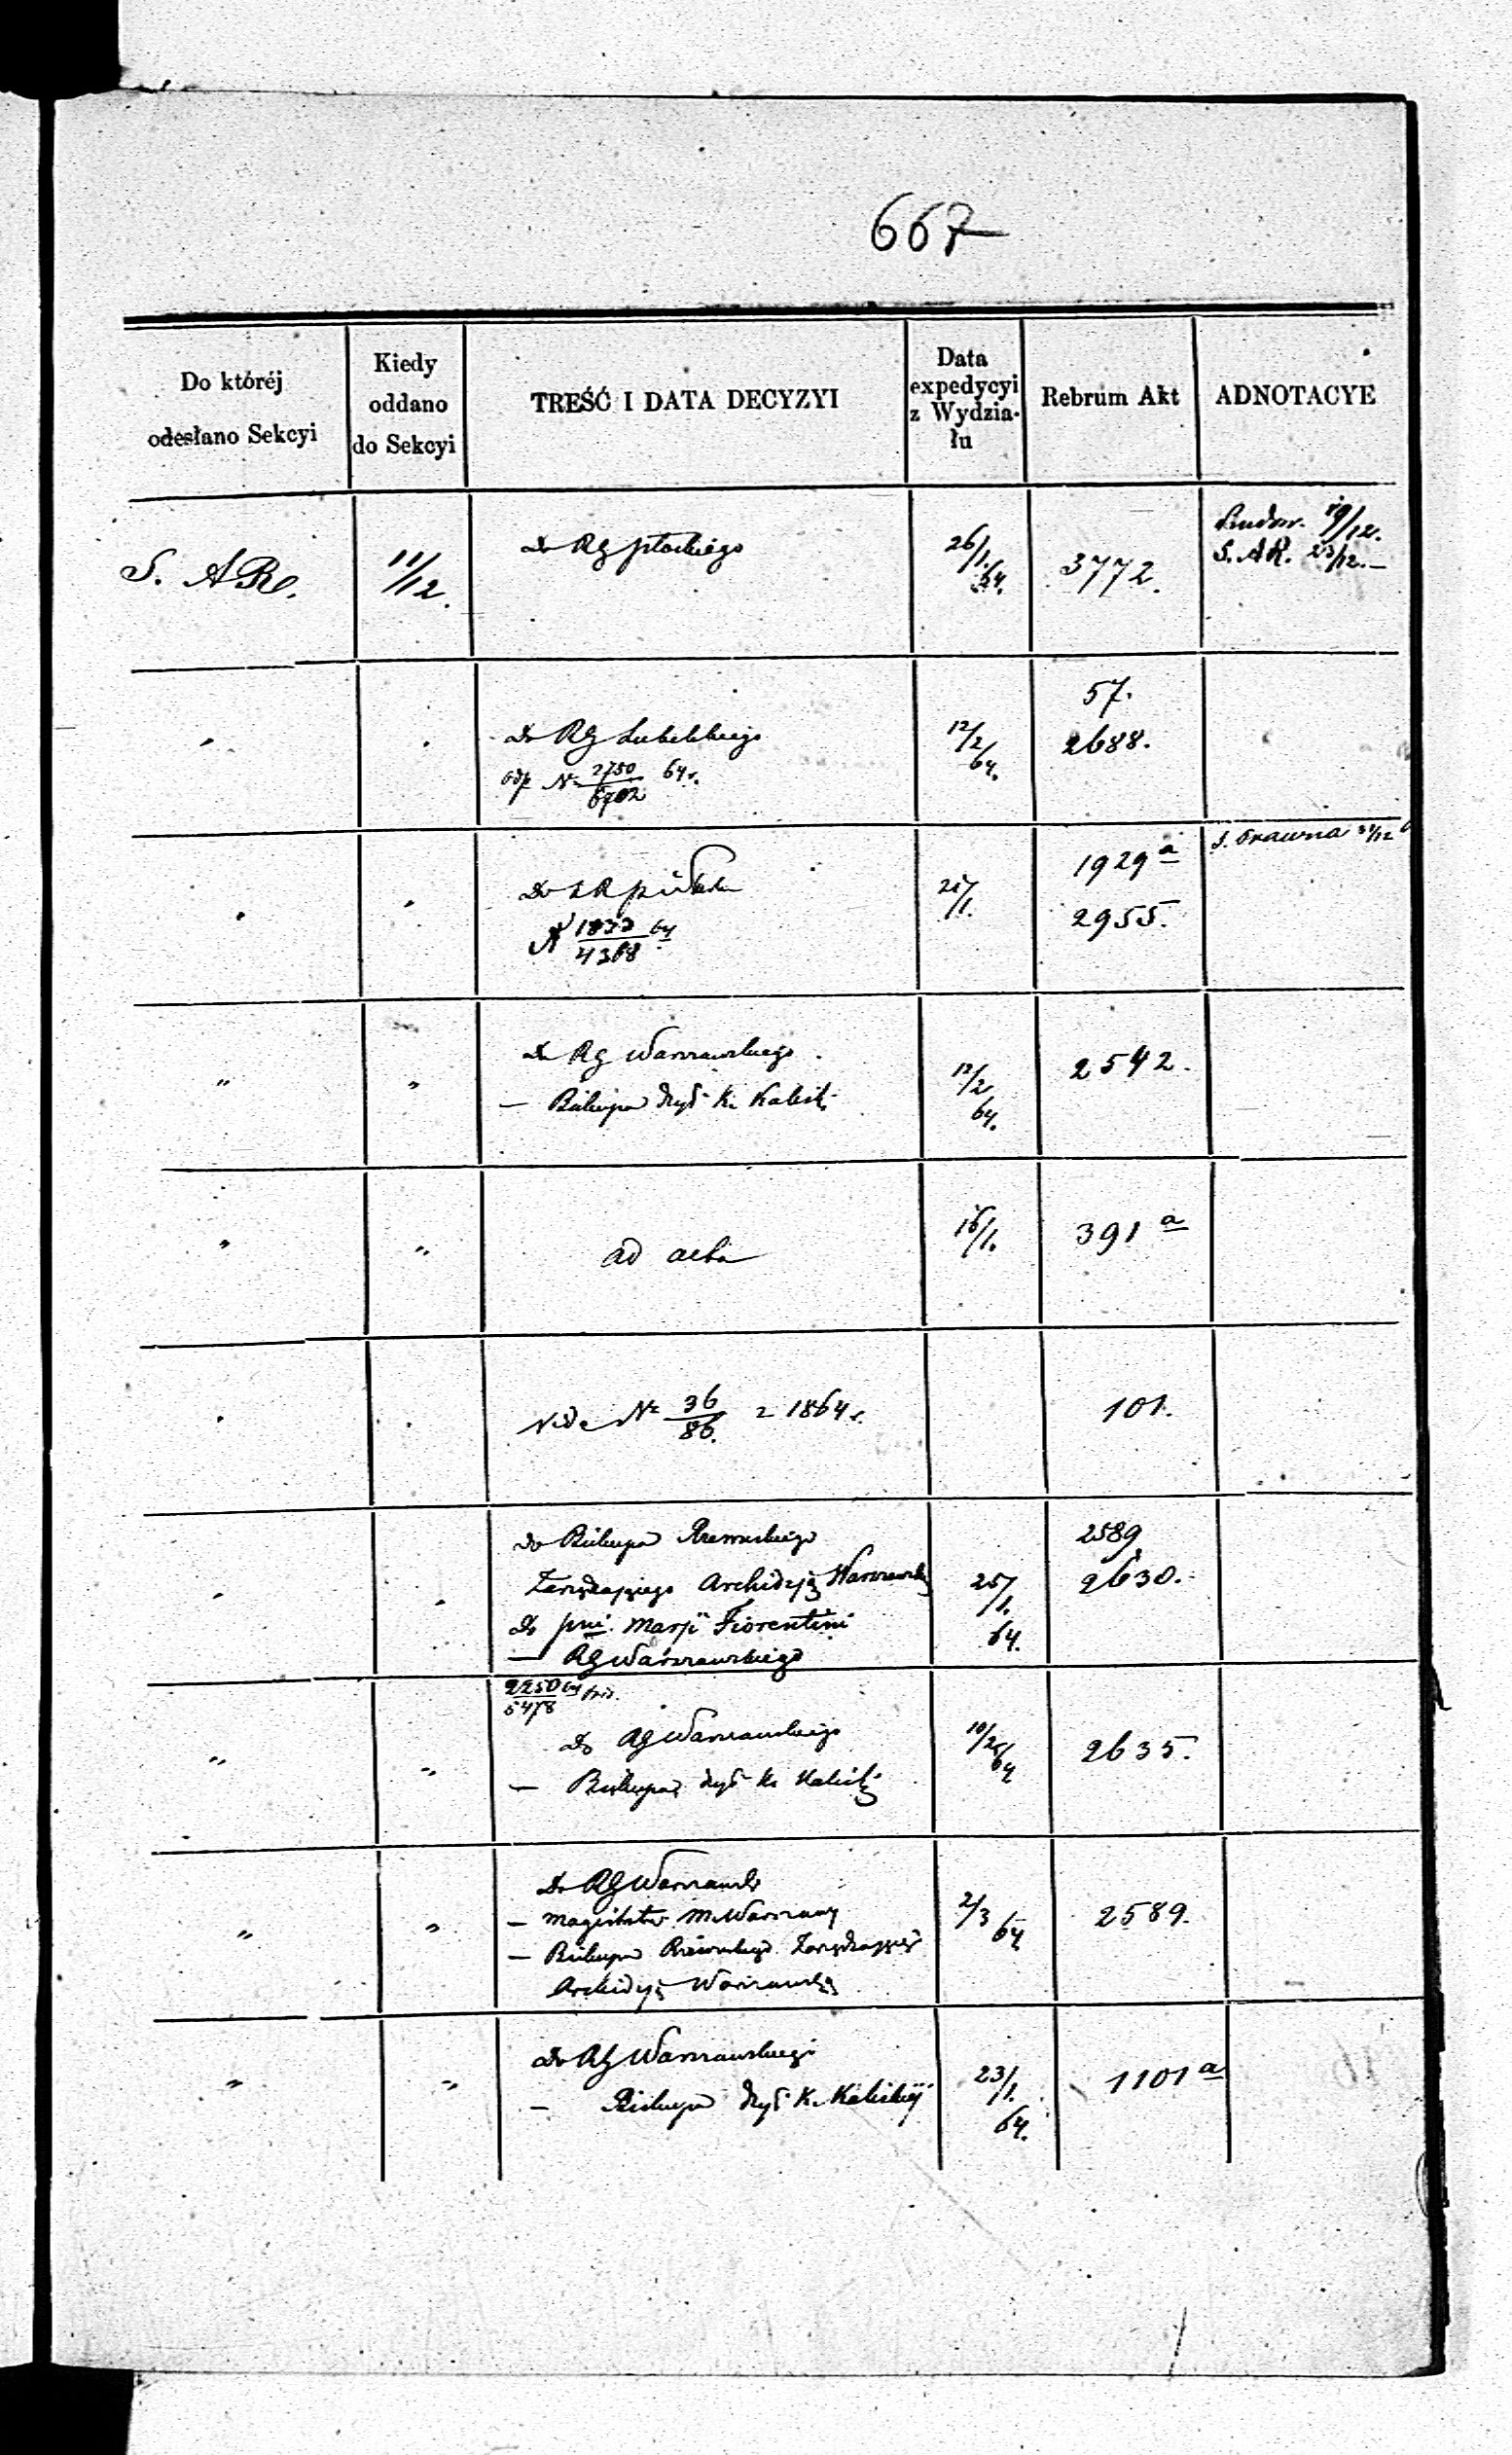 667
Do któréj
odesłano Sekcyi
Kiedy
oddano
do Sekcyi
TREŚĆ I DATA DECYZYI
Data
expedycyi
z Wydzia-
łu
Rebrum Akt
ADNOTACYE
S. ARe.
11/12.
Do RG płockiego
26/1. 64.
3772.
19/12.
S. AR. 23/12. —
"
"
Do RG Lubelskiego
odp No 2750/6702 64 r.
12/2 64.
57.
2688.
"
"
Do
No 1833/4368 64
21/1.
1929 a
2955.
S. Prawna 31/12
"
"
Do RG Warszawskiego.
— Biskupa Dyec K. Kalisk.
12/2 64.
2542.
"
"
ad acta
16/1.
391 a
"
"
Vide No 36/86. z 1864 r.
101.
"
"
do Biskupa Rzewuskiego
Zarządzającego Archidyec Warszawską
Do pni Marji Fiorentini
— RG Warszawskiego
25/1. 64.
2589
2630.
2250/5478 64
"
"
Do RG Warszawskiego
— Biskupa Dyec K. Kalisk.
10/2 64
2635.
"
"
Do RG Warszawsk
— Magistratu M. Warszawy
— Biskupa Rzewuskiego Zarządzającego
Archidyec Warszawską
2/3 64
2589.
"
"
Do RG Warszawskiego
— Biskupa Dyec K. Kaliskiej
23/1. 64.
1101 a